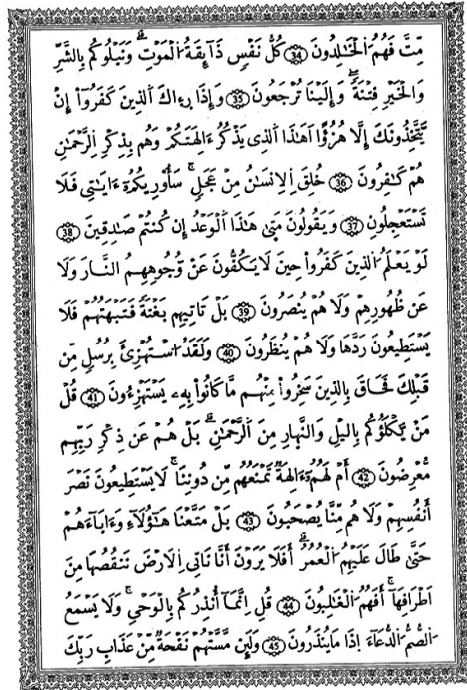 مِّتَّ فَهُمُ الْخَٰلِدُونَ 34 كُلُّ نَفْسٖ ذَآئِقَةُ الْمَوْتِۖ وَنَبْلُوكُم بِالشَّرِّ
وَالْخَيْرِ فِتْنَةٗۖ وَإِلَيْنَا تُرْجَعُونَۖ 35 وَإِذَا رِءَاكَ اَلذِينَ كَفَرُوٓاْ إِنْ
يَّتَّخِذُونَكَ إِلَّا هُزُؤًا اَهَٰذَا اَلذِي يَذْكُرُ ءَالِهَتَكُمْ وَهُم بِذِكْرِ اِلرَّحْمَٰنِ
هُمْ كَٰفِرُونَۖ 36 خُلِقَ اَلِانسَٰنُ مِنْ عَجَلٖۖ سَأُوْرِيكُمُۥٓ ءَايَٰتِي فَلَا
تَسْتَعْجِلُونِۖ 37 وَيَقُولُونَ مَتَىٰ هَٰذَا اَلْوَعْدُ إِن كُنتُمْ صَٰدِقِينَۖ 38
لَوْ يَعْلَمُ اُلذِينَ كَفَرُواْ حِينَ لَا يَكُفُّونَ عَنْ وُّجُوهِهِمُ النَّارَ وَلَا
عَن ظُهُورِهِمْ وَلَا هُمْ يُنصَرُونَۖ 39 بَلْ تَاتِيهِم بَغْتَةٗ فَتَبْهَتُهُمْ فَلَا
يَسْتَطِيعُونَ رَدَّهَا وَلَا هُمْ يُنظَرُونَۖ 40 وَلَقَدُ اُسْتُهْزِئَ بِرُسُلٖ مِّن
قَبْلِكَ فَحَاقَ بِالذِينَ سَخِرُواْ مِنْهُم مَّا كَانُواْ بِهِۦ يَسْتَهْزِءُونَۖ 41 قُلْ
مَنْ يَّكْلَؤُكُم بِاليْلِ وَالنَّهَارِ مِنَ اَلرَّحْمَٰنِۖ بَلْ هُمْ عَن ذِكْرِ رَبِّهِم
مُّعْرِضُونَۖ 42 أَمْ لَهُمُۥٓ ءَالِهَةٞ تَمْنَعُهُم مِّن دُونِنَاۖ لَا يَسْتَطِيعُونَ نَصْرَ
أَنفُسِهِمْ وَلَا هُم مِّنَّا يُصْحَبُونَۖ 43 بَلْ مَتَّعْنَا هَٰٓؤُلَآءِ وَءَابَآءَهُمْ
حَتَّىٰ طَالَ عَلَيْهِمُ الْعُمُرُۖ أَفَلَا يَرَوْنَ أَنَّا نَاتِي اِلَارْضَ نَنقُصُهَا مِنَ
اَطْرَافِهَآۖ أَفَهُمُ الْغَٰلِبُونَۖ 44 قُلِ اِنَّمَآ أُنذِرُكُم بِالْوَحْيِۖ وَلَا يَسْمَعُ
اُلصُّمُّ الدُّعَآءَ اِذَا مَا يُنذَرُونَۖ 45 وَلَئِن مَّسَّتْهُمْ نَفْحَةٞ مِّنْ عَذَابِ رَبِّكَ